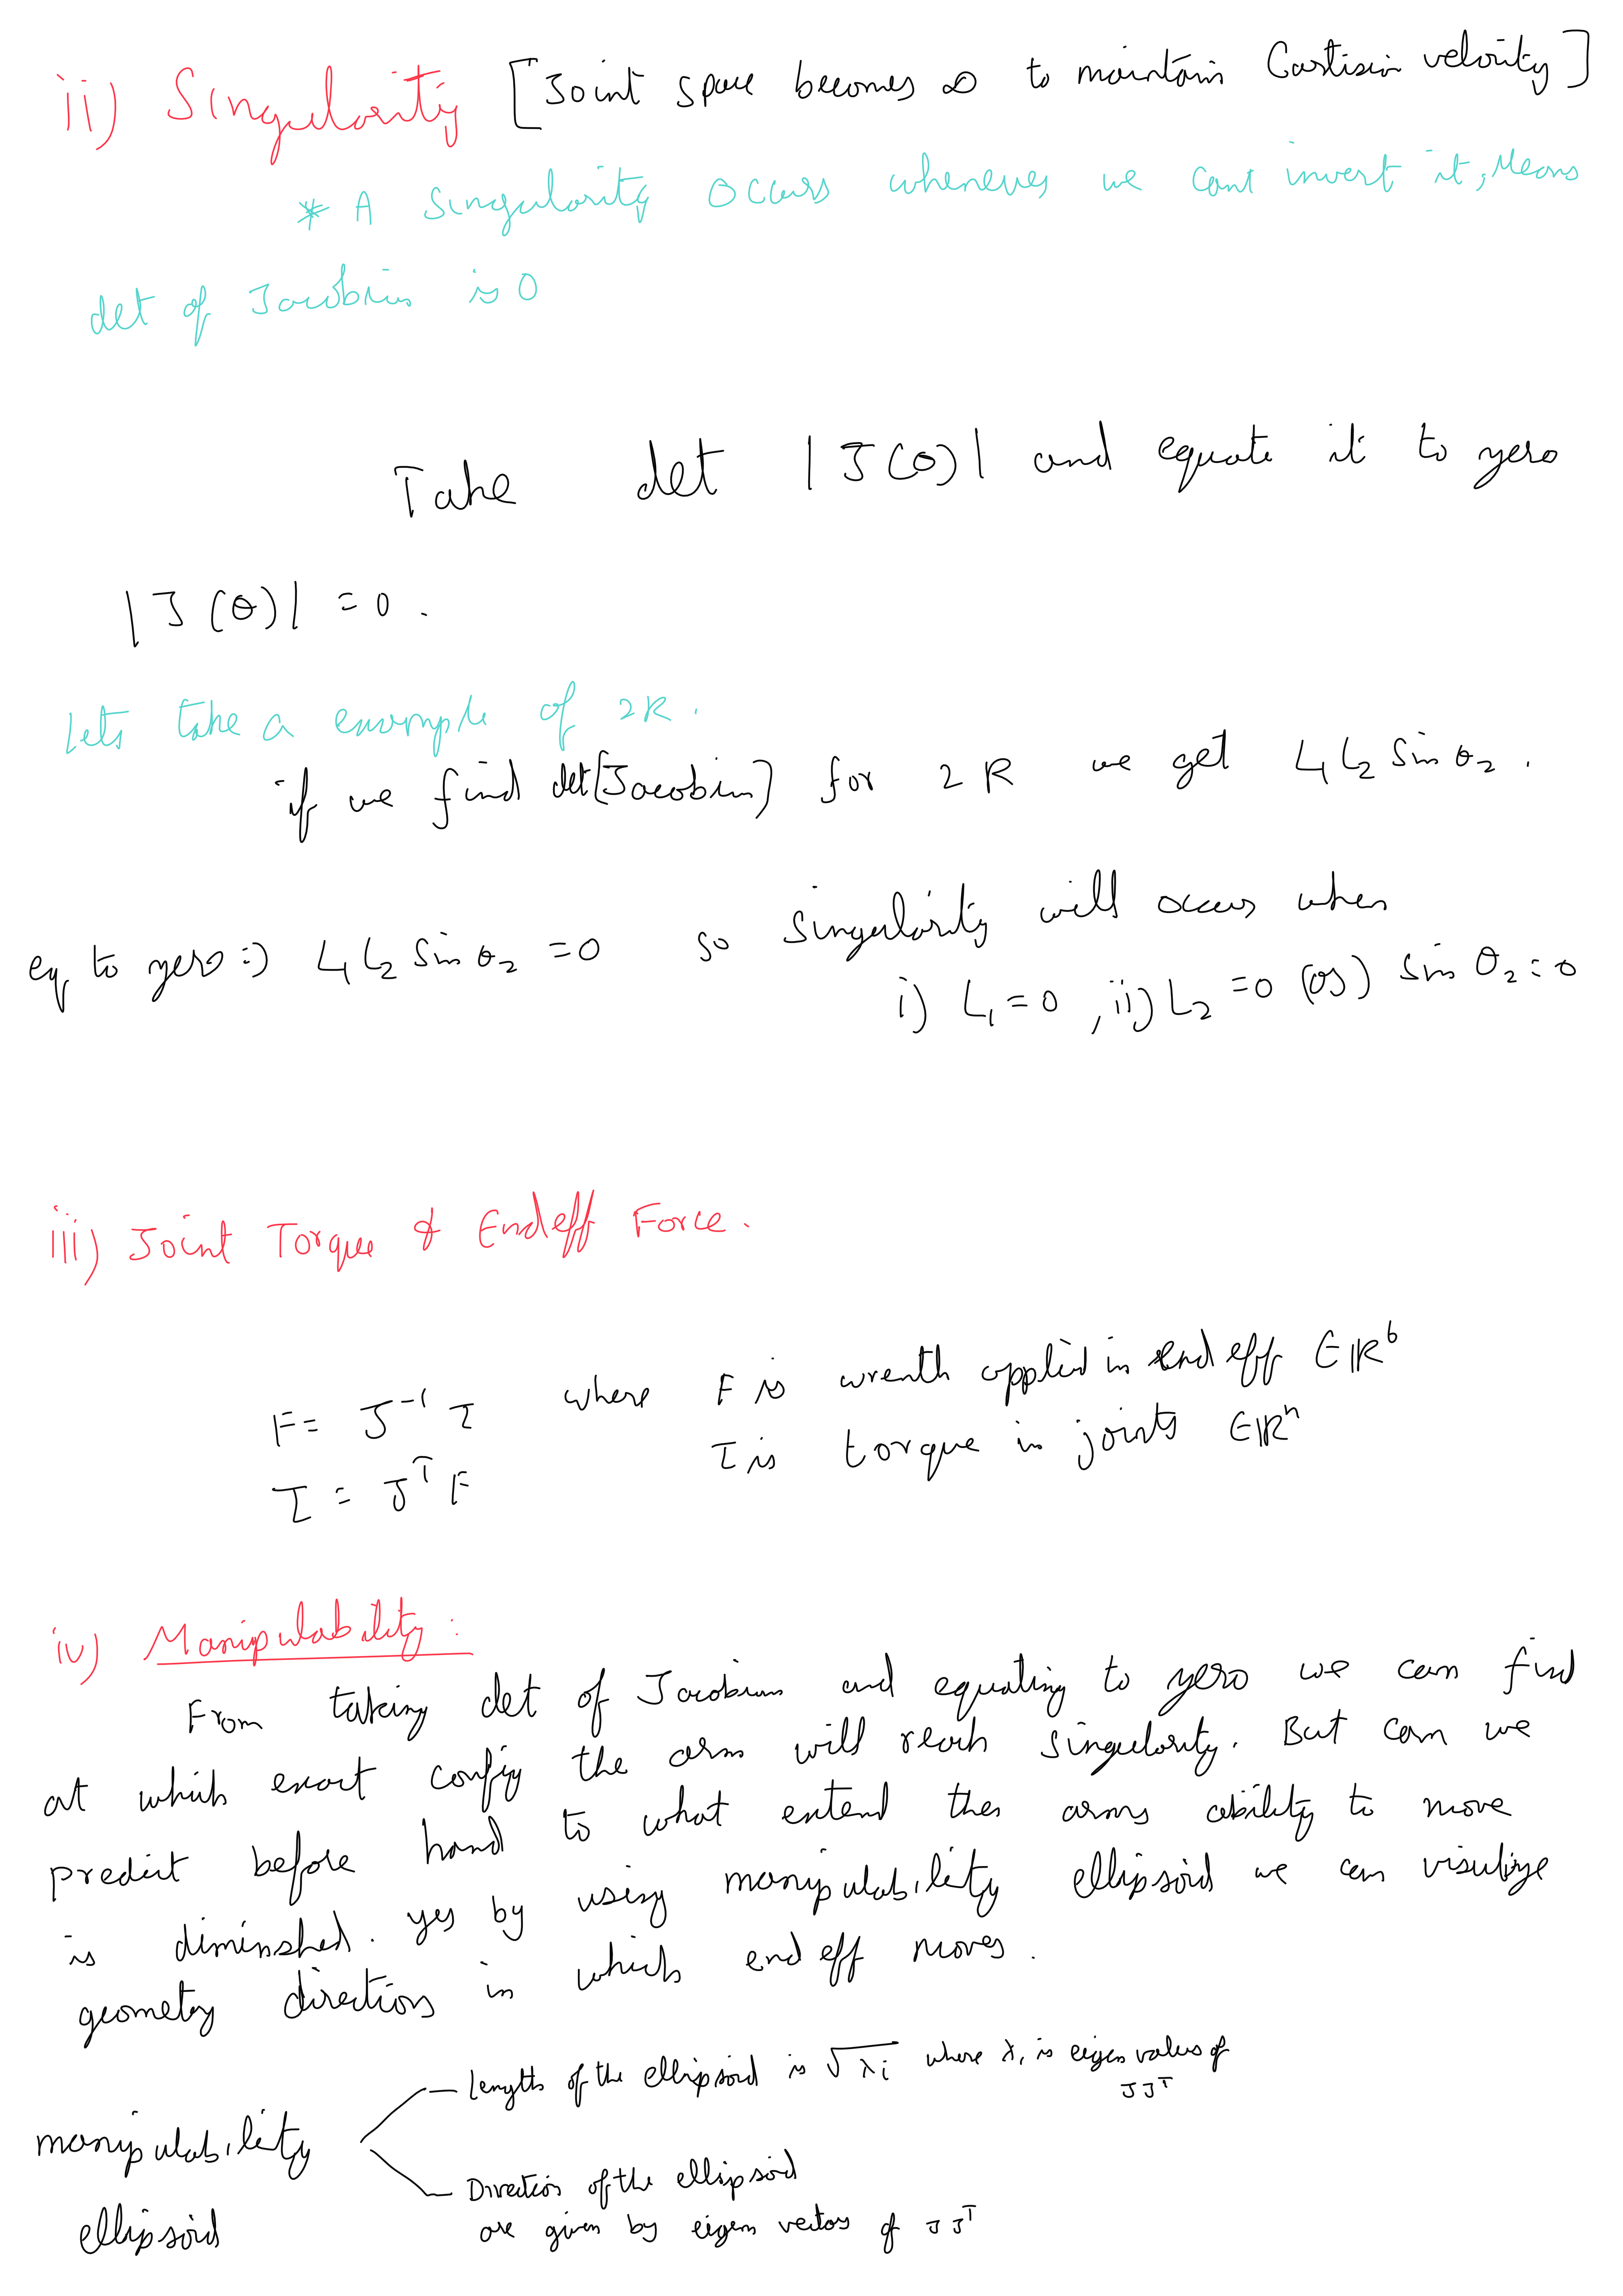 ii) Singularity [Joint space becomes ∞ to maintain Cartisian velocity]
* A singularity occurs whenever we cant invert it, Means
det of Jacobian is 0
Take det |J(θ)| and equate it to zero
|J(θ)| = 0.
Lets take a example of 2R.
if we find det[Jacobian] for 2R we get L₁L₂ Sin θ₂.
eq to zero :) L₁L₂ Sin θ₂ = 0 so singularity will occurs when
i) L₁ = 0, ii) L₂ = 0 (or) sin θ₂ = 0
iii) Joint Torque & Endeff Force.
F = J⁻¹ τ where F is wrenth applied in end eff ∈ ℝ⁶
τ = Jᵀ F τ is torque in joints ∈ ℝⁿ
iv) Manipulability :
From taking det of Jacobian and equating to zero we can find
at which exact config the arm will reach singularity. But can we
predict before hand to what extend the arms ability to move
is diminshed. yes by using manipulability ellipsoid we can visulize
geometry direction in which end eff moves.
manipulability ellipsoid
— Length of the ellipsoid is √λᵢ where λᵢ is eigen values of
JJᵀ
— Direction of the ellipsoid
are given by eigen vectors of JJᵀ